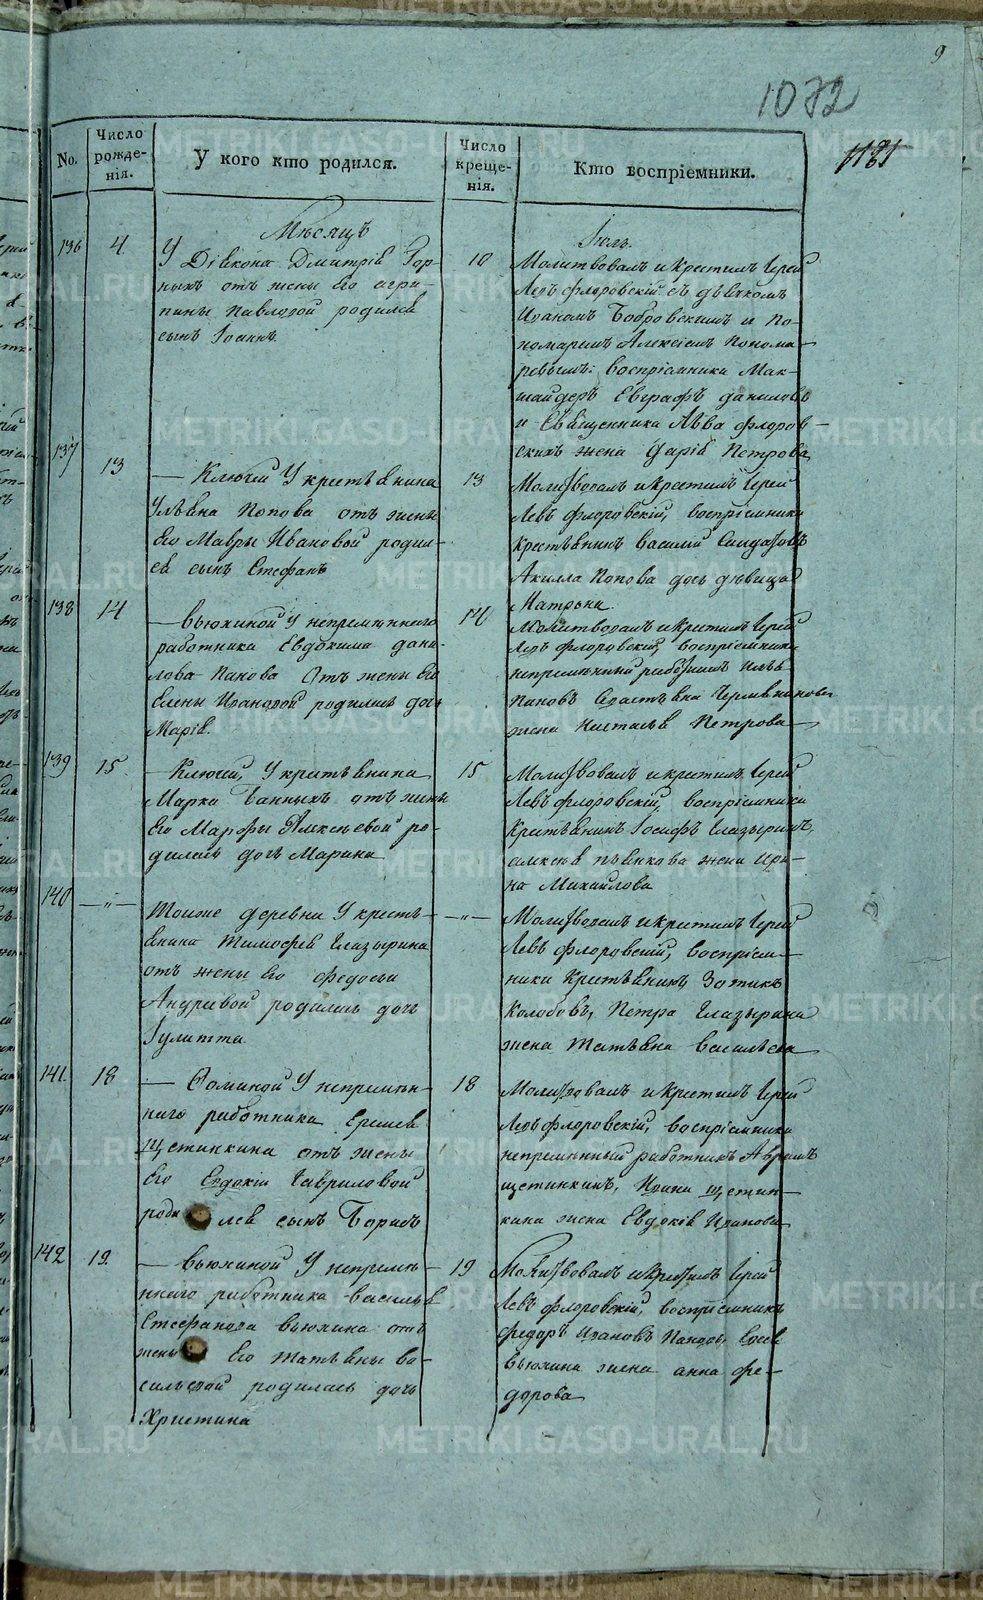 9
1072
1181
No.
Число рожде-нія.
У кого кто родился.
Число креще-нія.
Кто воспріемники.
Мѣсяцъ
Іюль.
136
4
У Діякона Димитрія Гор-
ныхъ отъ жены Его Агри-
пины Павловой родился
сынъ Іоаннъ
10
Молитвовалъ и крестилъ Іерей
Левъ Флоровскій съ дьячкомъ
Иваномъ Бобровскимъ и По-
номаремъ Алексіемъ Понома-
ревымъ: воспріемники Мак-
шайдеръ Евграфъ Даниловъ
и Священника Льва Флоров-
скихъ жена Дарія Петрова
137
13
— Ключи У крестьянина
Ульяна Попова отъ жены
Его Мавры Ивановой родил-
ся сынъ Стефанъ
13
Молитвовалъ и крестилъ Іерей
Левъ Флоровскій, воспріемники
крестьянинъ Василій
Акилла Попова дочь дѣвица
Матрона
138
14
— Вьюхиной У непремѣннаго
работника Евдокима Дани-
лова Панова Отъ жены Его
Елены Ивановой родилась дочь
Марія.
14
Молитвовалъ и крестилъ Іерей
Левъ Флоровскій, воспріемники
непремѣнный работникъ Илья
Пановъ Савастьяна
жена Настасья Петрова
139
15
— Ключи, У крестьянина
Марка Банныхъ отъ жены
Его Марфы Алексѣевой ро-
дилась дочь Марина
15
Молитвовалъ и крестилъ Іерей
Левъ Флоровскій, воспріемники
Крестьянинъ Іосифъ Глазыринъ,
Алексѣя Пьянкова жена Ири-
на Михайлова
140
—"—
Тоиже деревни У кресть-
янина Тимофея Глазырина
отъ жены Его Федосьи
Андреевой родилась дочь
Іулитта
—"—
Молитвовалъ и крестилъ Іерей
Левъ Флоровскій, воспріем-
ники Крестьянинъ Зотикъ
Колобовъ, Петра Глазырина
жена Татьяна Васильева
141.
18
— Фоминой У непремѣн-
наго работника Ермея
Щетинкина отъ жены
Его Евдокіи Гавриловой
роди лся сынъ Борисъ
18
Молитвовалъ и крестилъ Іерей
Левъ Флоровскій, воспріемники
непремѣнный работникъ Абрамъ
Щетинкинъ, Ивана Щетин-
кина жена Евдокія Иванова
142
19.
— Вьюхиной У непремѣн-
ннаго работника Василья
Стефанова Вьюхина отъ
жены Его Татьяны Ва-
сильевой родилась дочь
Христина
19
Молитвовалъ и крестилъ Іерей
Левъ Флоровскій, воспріемникъ
Федоръ Ивановъ Пановъ,
Вьюхина жена Анна Фе-
дорова
METRIKI.GASO-URAL.RU